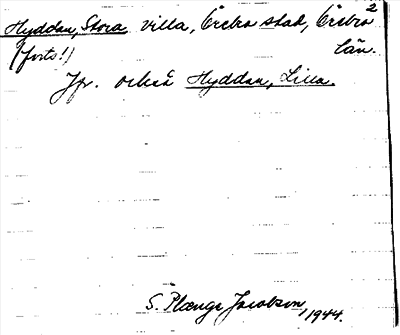 2
Hyddan, Stora villa, Örebro stad, Örebro
(forts!) län.
Jfr. också Hyddan, Lilla.
S. Plænge Jacobson, 1944.